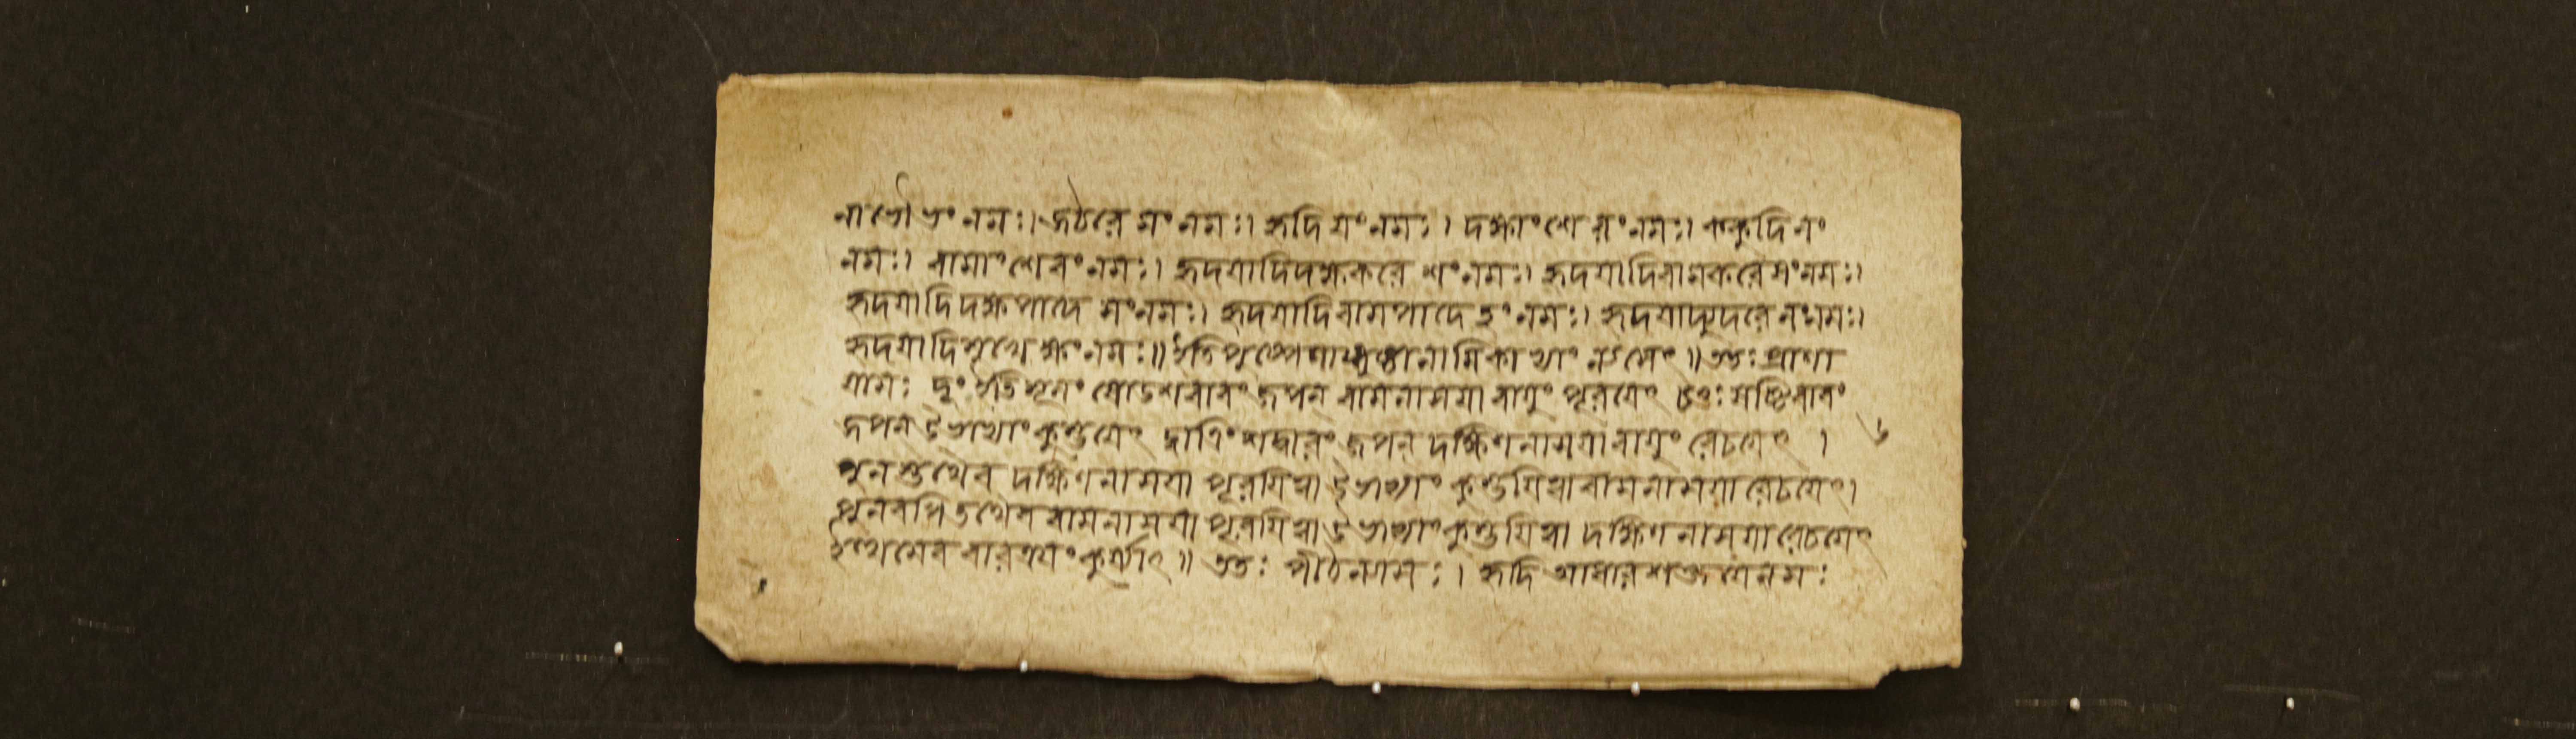 নাভৌ ভং নমঃ। জঠরে মং নমঃ। হৃদি যং নমঃ। দক্ষাংশে ৰং নমঃ। ককুদি লং
নমঃ। বামাংশে বং নমঃ। হৃদয়াদিদক্ষকরে শং নমঃ। হৃদয়াদিবামকরে ষং নমঃ।
হৃদয়াদিদক্ষপাদে সং নমঃ। হৃদয়াদিবামপাদে হং নমঃ। হৃদয়াদ্যুদরে লং নমঃ।
হৃদয়াদিমুখে ক্ষং নমঃ॥ ইতি পুষ্পেণাঙ্গুষ্ঠানামিকাভ্যাং ন্যসেৎ॥ ততঃ প্রাণা
য়ামঃ ইতি মূলং ষোডশবারং জপন বামনাসয়া বায়ুং পূরয়েৎ চতুঃষষ্টিবারং
জপন উভাভ্যাং কুম্ভয়েৎ দ্বাত্রিংশদ্বারং জপন দক্ষিণনাসয়া বায়ুং রেচয়েৎ । ৬
পুনস্তথৈব দক্ষিণনাসয়া পূরয়িত্বা উভাভ্যাং কুম্ভয়িত্বা বামনাসয়া রেচয়েৎ।
পুনরপি তথৈব বামনাসয়া পূরয়িত্বা উভাভ্যাং কুম্ভয়িত্বা দক্ষিণনাসয়া রেচয়েৎ
ইত্থমেব বারত্রয়ং কুর্য্যাৎ॥ ততঃ পীঠন্যাসঃ। হৃদি আধারশক্তয়ে নমঃ